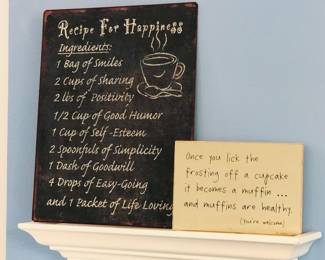 Recipe For Happiness
Ingredients:
1 Bag of Smiles
2 Cups of Sharing
2 lbs of Positivity
1/2 Cup of Good Humor
1 Cup of Self-Esteem
2 Spoonfuls of Simplicity
1 Dash of Goodwill
4 Drops of Easy-Going
and 1 Packet of Life Loving
Once you lick the
frosting off a cupcake
it becomes a muffin ...
and muffins are healthy.
(You're welcome)